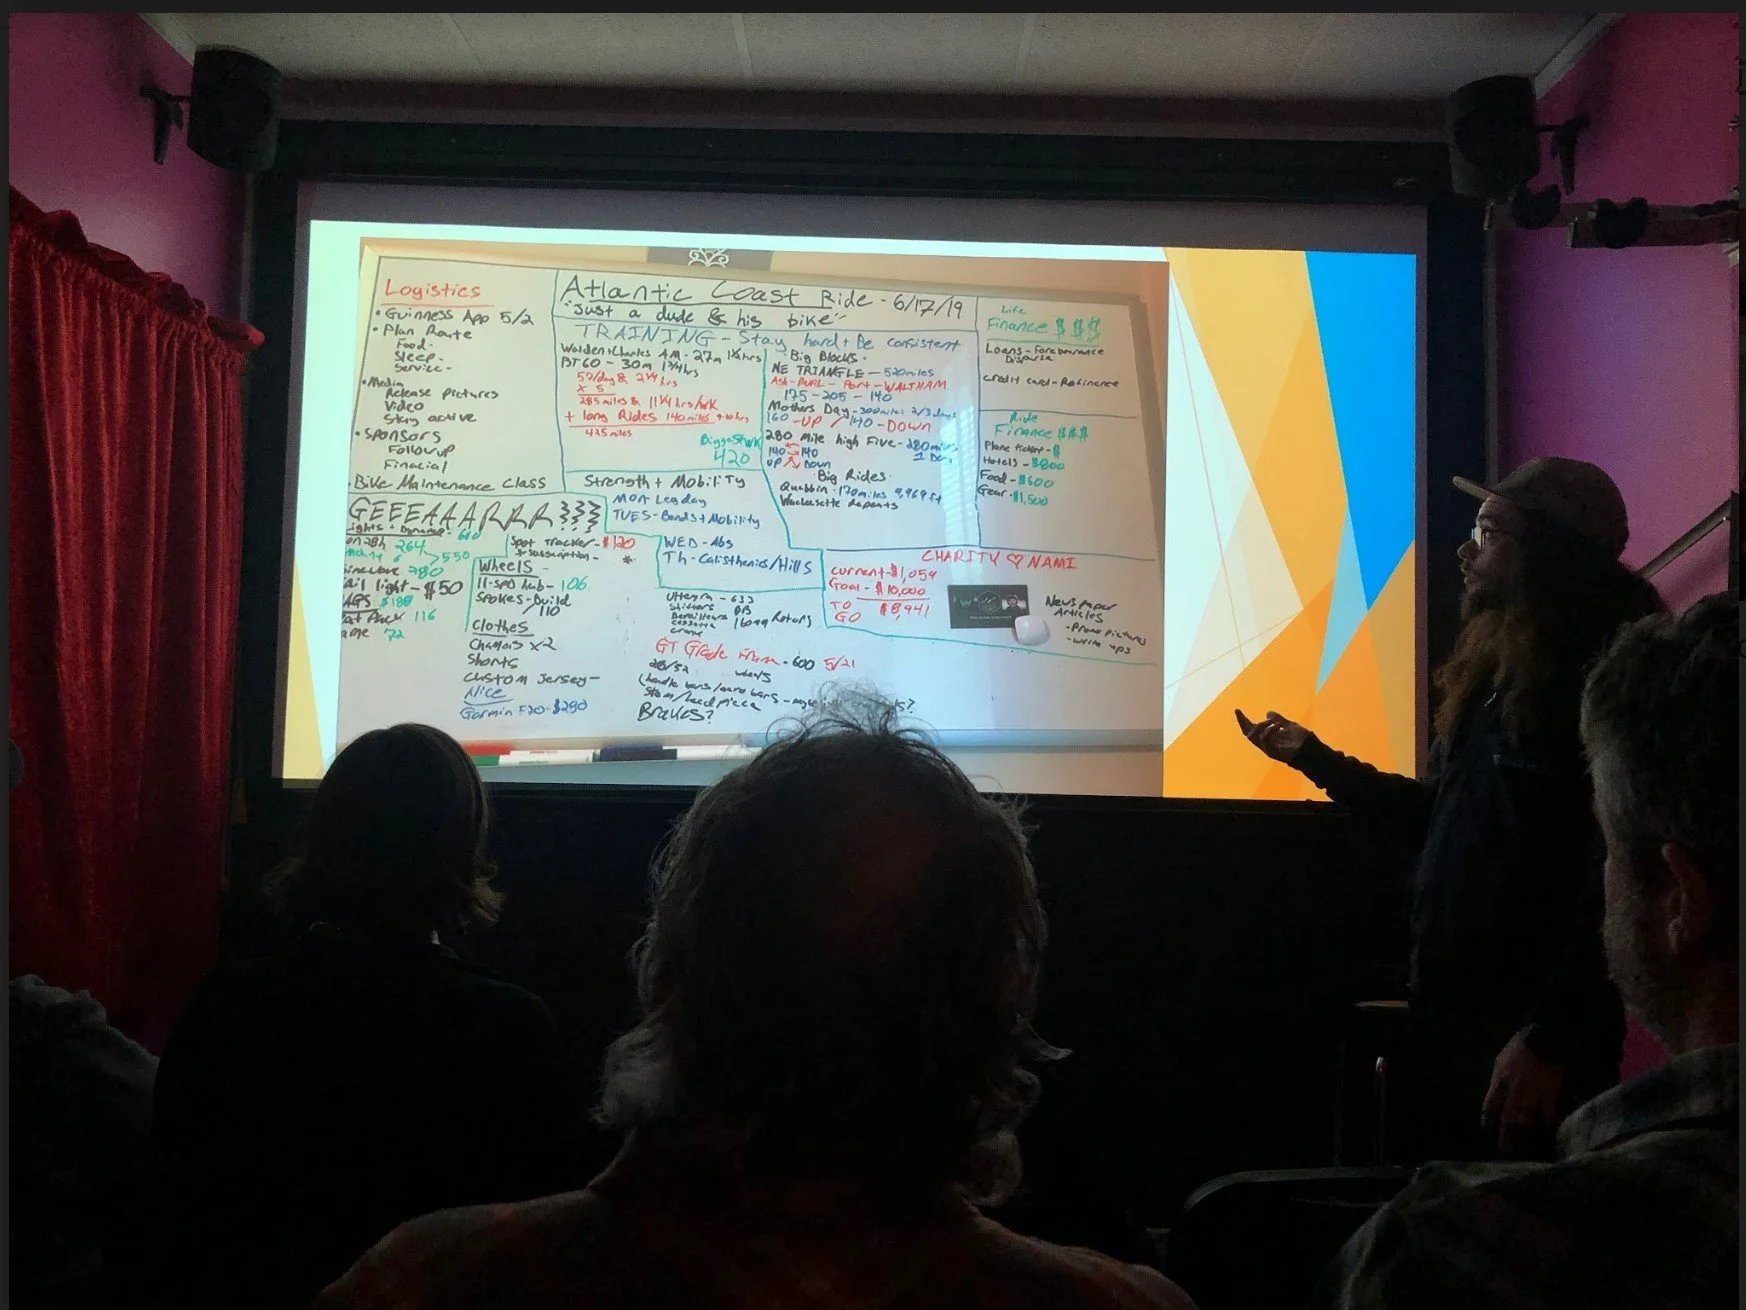 Logistics
• Guinness App 5/2
• Plan Route
Food -
Sleep -
Service -
• Media
Release pictures
Video
Stay active
• Sponsors
Followup
Finacial
• Bike Maintenance Class
Atlantic Coast Ride - 6/17/19
"Just a dude & his bike"
TRAINING - Stay hard + Be consistent
Walden + Charles AM - 27m 1½hrs
BT60 - 30m 1¾hrs
57/day & 2¼hrs
x 5
285 miles & 11¼ hrs/wk
+ long Rides 140 miles 9-10 hrs
425 miles
420
Big Blocks -
NE TRIANGLE - 520 miles
Port - WALTHAM
175 - 205 - 140
Mothers Day - 300 miles 2/3 days
160 - UP / 140 - DOWN
280 mile high Five - 280 miles
1 Day
140 140
UP Down
Big Rides -
Quabbin - 170 miles 9,969 ft
Wachusette Repeats
Life
Finance $ $ $
Loans - Forebearance
Disperse
Credit card - Refinance
Ride
Finance $$$
Plane ticket - $
Hotels - $800
Food - $600
Gear - $1,500
Strength + Mobility
Mon Leg day
TUES - Bands + Mobility
WED - Abs
Th - Calisthenics/Hills
GEEEAAARRR
Spot tracker - $120
+ subscription -
264
550
280
ail light - $50
116
72
Wheels -
11-spd hub - 106
Spokes - Build
/110
Clothes
Chamois x2
Shorts
Custom Jersey -
Nice
Garmin 520 - $280
Ultegra - 633
Shifters
Derailleurs
Cassette
Crank
160mm Rotors
GT Grade Frame - 600 5/21
wheels
handle bars/aero bars -
Stem/headpiece
Brakes?
CHARITY ♡ NAMI
Current - $1,059
Goal - $10,000
TO $8,941
GO
Newspaper
Articles
- Promo pictures
- write ups